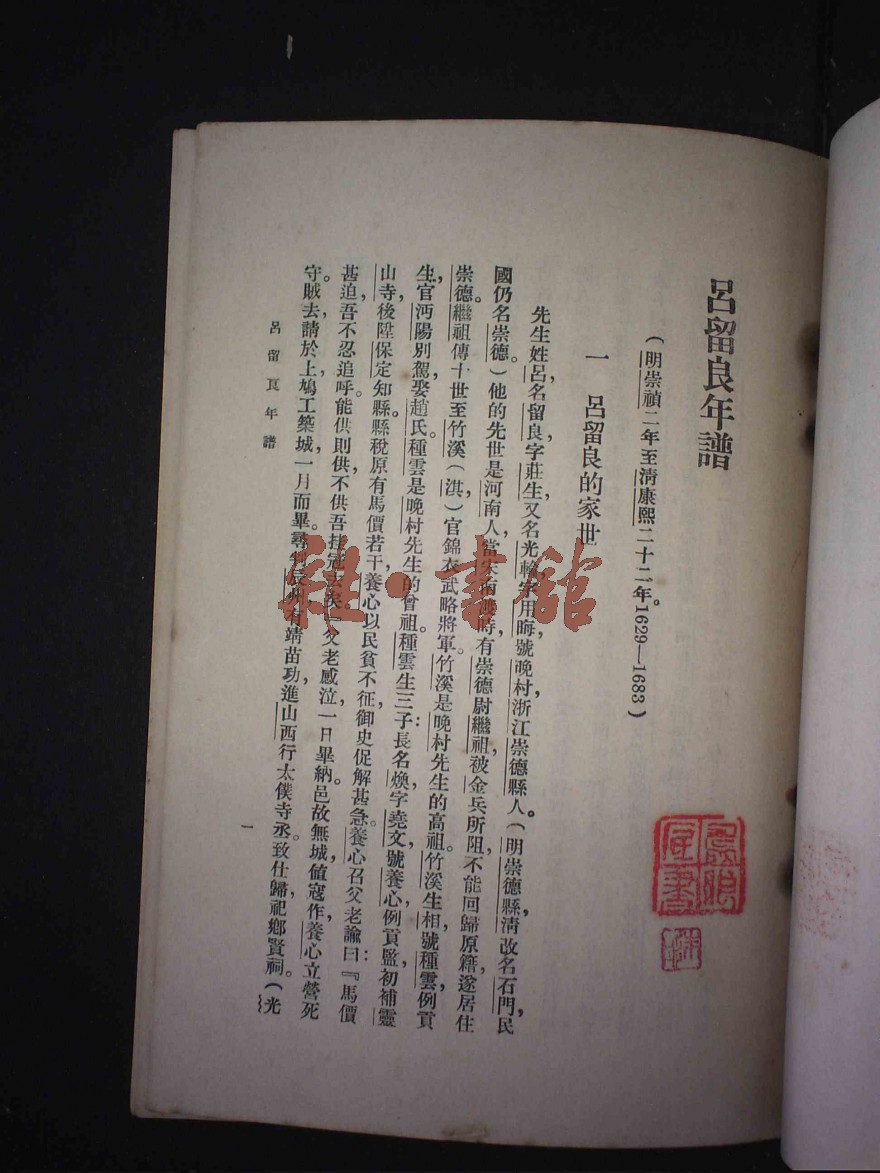 呂留良年譜
（明崇禎二年至清康熙二十二年。1629—1683）
一 呂留良的家世
先生姓呂，名留良，字莊生，又名光輪，字用晦，號晚村，浙江崇德縣人。（明崇德縣，清改名石門，民
國仍名崇德。）他的先世是河南人，當宋南渡時，有崇德尉繼祖，被金兵所阻，不能回歸原籍，遂居住
崇德。繼祖傳十世至竹溪（淇），官錦衣武略將軍。竹溪是晚村先生的高祖。竹溪生相，號種雲，例貢
生，官沔陽別駕，娶趙氏。種雲是晚村先生的曾祖。種雲生三子：長名煥，字堯文，號養心，例貢監，初補靈
山寺，後陞保定知縣。縣稅原有馬價若干，養心以民貧不征，御史促解甚急。養心召父老諭曰：『馬價
甚迫，吾不忍追呼。能供則供，不供吾挂冠去矣。』父老感泣，一日畢納。邑故無城，値寇作，養心立營死
守。賊去，請於上，鳩工築城，一月而畢。尋判辰州，有靖苗功，進山西行太僕寺丞。致仕歸，祀鄉賢祠。（光
呂留良年譜
一
雜·書館